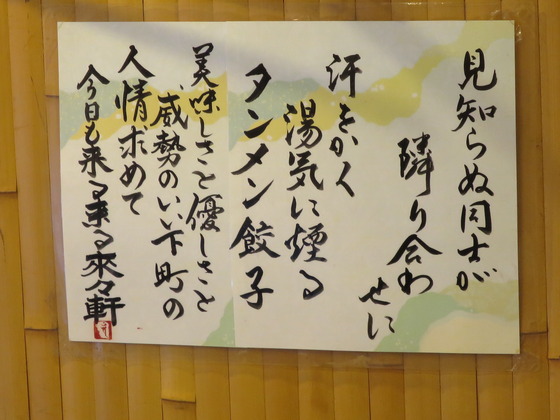 見知らぬ同士が
隣り合わ
せに
汗をかく
湯気に煙る
タンメン餃子
美味しさと優しさと
威勢のいい下町の
人情求めて
今日も来る来る來々軒